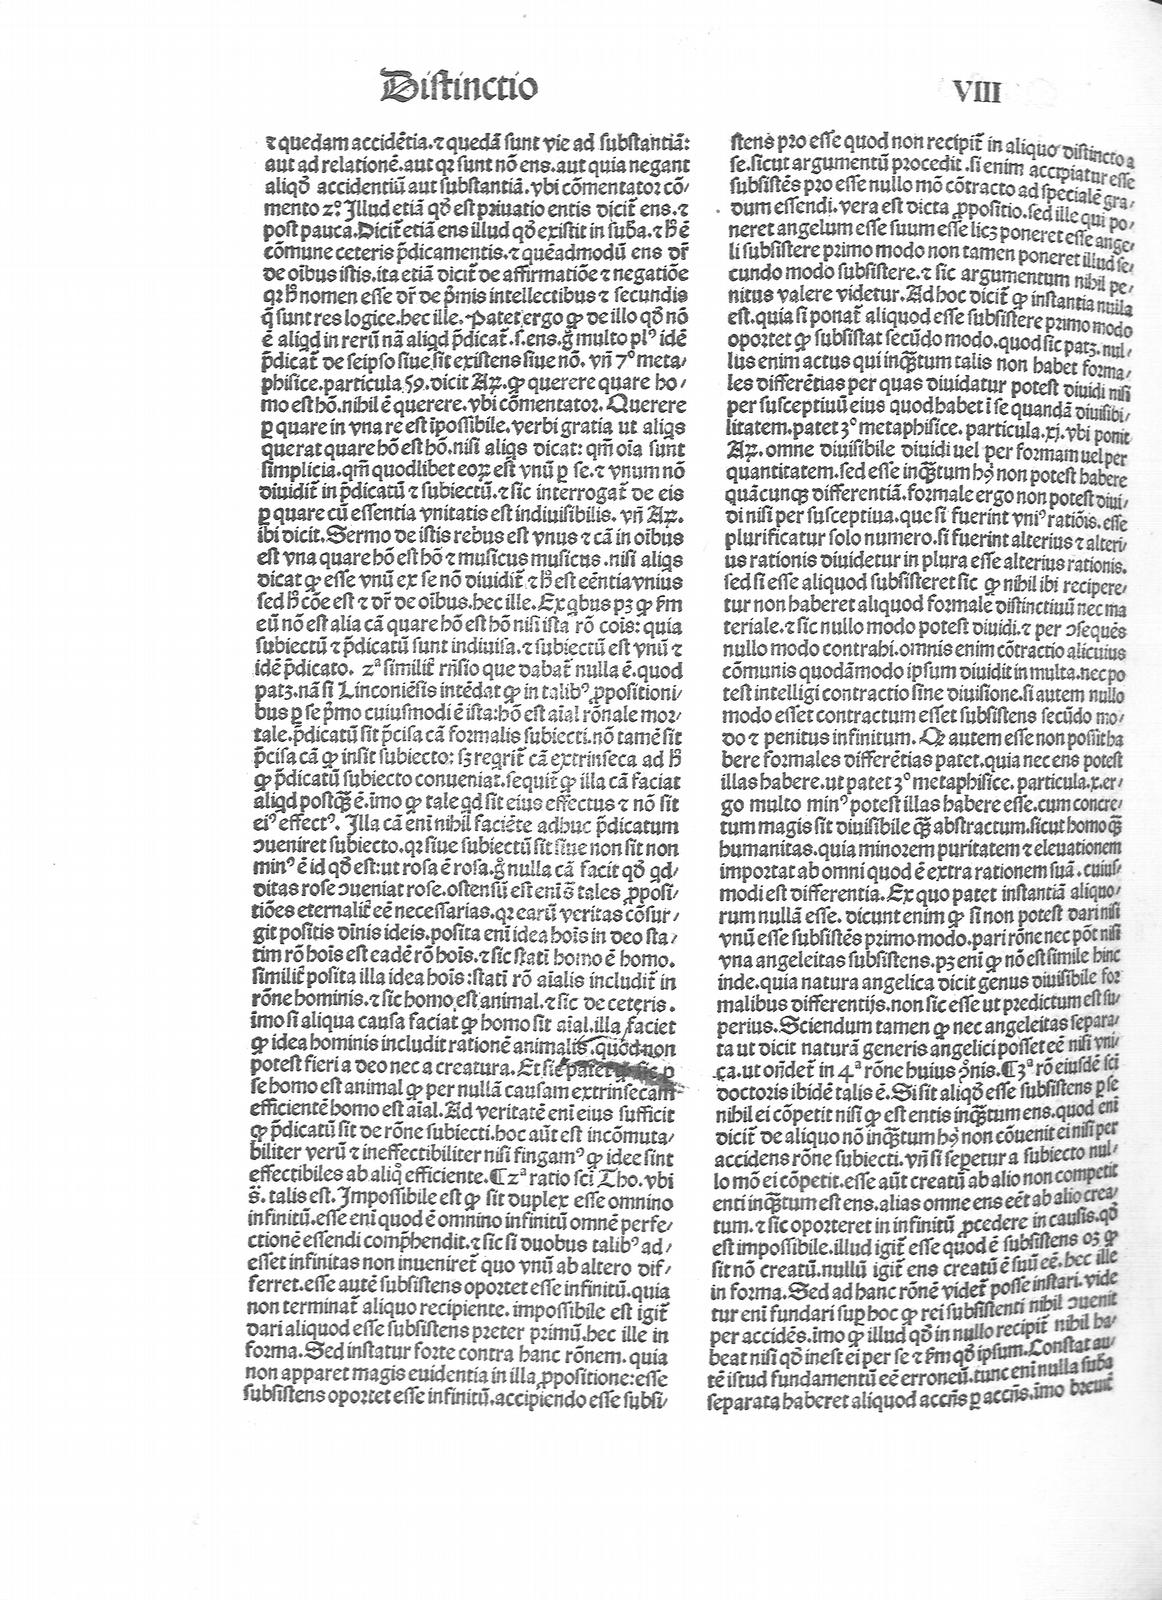 Distinctio
VIII
⁊ quedam accidẽtia.⁊ quedã sunt vie ad substantiã:
aut ad relationẽ.aut qꝛ sunt nõ ens.aut quia negant
aliqð accidentiũ aut substantiã.vbi cõmentatoꝛ cõ/
mento 2.º Illud etiã qð est pꝛiuatio entis diciť ens.⁊
post pauca.Diciť etiã ens illud qð existit in suƀa.⁊ ħ ẽ
cõmune ceteris p̃dicamentis.⁊ quẽadmodũ ens dr̃
de oĩbus istis.ita etiã diciť de affirmatiõe ⁊ negatiõe
qꝛ ħ nomen esse dr̃ de p̃mis intellectibus ⁊ secundis
q̃ sunt res logice.hec ille. Patet ergo ꝙ de illo qð nõ
ẽ aliqd in reꝝ nã aliqd p̃dicať.s.ens.g̃ multo plꝰ idẽ
p̃dicať de seipso siue sit existens siue nõ. vñ 7º meta/
phisice.particula 59.dicit Aꝝ. ꝙ querere quare ho/
mo est hõ.nihil ẽ querere.vbi cõmentatoꝛ. Querere
ꝑ quare in vna re est ĩpossibile. verbi gratia ut aliqs
querat quare hõ est hõ.nisi aliqs dicat: qm̃ oĩa sunt
simplicia.qm̃ quodlibet eoꝝ est vnũ ꝑ se.⁊ vnum nõ
diuidiť in p̃dicatũ ⁊ subiectũ.⁊ sic interrogať de eis
ꝑ quare cũ essentia vnitatis est indiuisibilis. vñ Aꝝ.
ibi dicit.Sermo de istis rebus est vnus ⁊ cã in oĩbus
est vna quare hõ est hõ ⁊ musicus musicus .nisi aliqs
dicat ꝙ esse vnũ ex se nõ diuidiť ⁊ ħ est eẽntia vnius
sed ħ cõe est ⁊ dr̃ de oĩbus.hec ille. Ex qbus pꝫ ꝙ ẜm
eũ nõ est alia cã quare hõ est hõ nisi ista rõ cõis: quia
subiectũ ⁊ p̃dicatũ sunt indiuisa.⁊ subiectũ est vnũ ⁊
idẽ p̃dicato. 2ª similiť rñsio que dabať nulla ẽ.quod
patꝫ.nã si Linconiẽsis intẽdat ꝙ in talibꝰ ꝓpositioni/
bus ꝑ se p̃mo cuiusmodi ẽ ista:hõ est aĩal rõnale moꝛ/
tale.p̃dicatũ sit p̃cisa cã formalis subiecti.nõ tamẽ sit
p̃cisa cã ꝙ insit subiecto: sꝫ reqriť cã extrinseca ad ħ
ꝙ p̃dicatũ subiecto conueniat.sequiť ꝙ illa cã faciat
aliqd postq̃ ẽ.ĩmo ꝙ tale qd sit eius effectus ⁊ nõ sit
eiꝰ effectꝰ. Illa cã enĩ nihil faciẽte adhuc p̃dicatum
ↄueniret subiecto.qꝛ siue subiectũ sit siue non sit non
minꝰ ẽ id qð est:ut rosa ẽ rosa.g̃ nulla cã facit qð qd/
ditas rose ↄueniat rose.ostensũ est enĩ s̃ tales ꝓposi/
tiões eternaliť eẽ necessarias.qꝛ earũ veritas cõsur/
git positis diuĩs ideis.posita enĩ idea hoĩs in deo sta/
tim rõ hoĩs est eadẽ rõ hoĩs.⁊ sic statĩ homo ẽ homo.
similiť posita illa idea hoĩs:stati rõ aĩalis includiť in
rõne hominis.⁊ sic homo est animal.⁊ sic de ceteris.
ĩmo si aliqua causa faciat ꝙ homo sit aĩal.illa faciet
ꝙ idea hominis includit rationẽ animalis.quod non
potest fieri a deo nec a creatura. Et sic patet ꝙ sic ꝑ
se homo est animal ꝙ per nullã causam extrinsecam
efficientẽ homo est aĩal. Ad veritatẽ enĩ eius sufficit
ꝙ p̃dicatũ sit de rõne subiecti.hoc aũt est incõmuta/
biliter verũ ⁊ ineffectibiliter nisi fingamꝰ ꝙ idee sint
effectibiles ab aliq̃ efficiente. ¶2ª ratio sc̃i Tho. vbi
s̃. talis est. Impossibile est ꝙ sit duplex esse omnino
infinitũ.esse enĩ quod ẽ omnino infinitũ omnẽ perfe/
ctionẽ essendi comp̃hendit.⁊ sic si duobus talibꝰ ad/
esset infinitas non inuenireť quo vnũ ab altero dif/
ferret.esse autẽ subsistens oportet esse infinitũ.quia
non terminať aliquo recipiente. impossibile est igiť
dari aliquod esse subsistens preter primũ.hec ille in
forma. Sed instatur forte contra hanc rõnem. quia
non apparet magis euidentia in illa ꝓpositione:esse
subsistens oportet esse infinitũ.accipiendo esse subsi/
stens pꝛo esse quod non recipiť in aliquo distincto a
se.sicut argumentũ pꝛocedit.si enim accipiatur esse
subsistẽs pꝛo esse nullo mõ cõtracto ad specialẽ gra/
dum essendi.vera est dicta ꝓpositio.sed ille qui po/
neret angelum esse suum esse licꝫ poneret esse ange/
li subsistere primo modo non tamen poneret illud se/
cundo modo subsistere.⁊ sic argumentum nihil pe/
nitus valere videtur. Ad hoc diciť ꝙ instantia nulla
est.quia si ponať aliquod esse subsistere pꝛimo modo
opoꝛtet ꝙ subsistat secũdo modo.quod sic patꝫ. nul/
lus enim actus qui inq̃tum talis non habet forma/
les differẽtias per quas diuidatur potest diuidi nisi
per susceptiuũ eius quod habet ĩ se quandã diuisibi/
litatem.patet 3º metaphisice. particula.xj.vbi ponit
Aꝝ. omne diuisibile diuidi uel per formam uel per
quantitatem.sed esse inq̃tum hꝰ non potest habere
quãcunqꝫ differentiã.formale ergo non potest diui/
di nisi per susceptiua.que si fuerint vniꝰ ratiõis. esse
plurificatur solo numero.si fuerint alterius ⁊ alteri/
us rationis diuidetur in plura esse alterius rationis.
sed si esse aliquod subsisteret sic ꝙ nihil ibi recipere/
tur non haberet aliquod formale distinctiuũ nec ma
teriale.⁊ sic nullo modo potest diuidi.⁊ per ↄsequẽs
nullo modo contrahi.omnis enim cõtractio alicuius
cõmunis quodãmodo ipsum diuidit in multa.nec po
test intelligi contractio sine diuisione.si autem nullo
modo esset contractum esset subsistens secũdo mo/
do ⁊ penitus infinitum. Qꝛ autem esse non possit ha
bere formales differẽtias patet.quia nec ens potest
illas habere.ut patet 3º metaphisice. particula.x.er/
go multo minꝰ potest illas habere esse.cum concre/
tum magis sit diuisibile q̃ abstractum.sicut homo q̃
humanitas.quia minoꝛem puritatem ⁊ eleuationem
impoꝛtat ab omni quod ẽ extra rationem suã. cuius/
modi est differentia. Ex quo patet instantiã aliquo/
rum nullã esse. dicunt enim ꝙ si non potest dari nisi
vnũ esse subsistẽs pꝛimo modo.pari rõne nec põt nisi
vna angeleitas subsistens.pꝫ enĩ ꝙ nõ est simile hinc
inde.quia natura angelica dicit genus diuisibile for
malibus differentijs.non sic esse ut pꝛedictum est su/
perius. Sciendum tamen ꝙ nec angeleitas separa/
ta ut dicit naturã generis angelici posset eẽ nisi vni/
ca.ut oñdeť in 4ª rõne huius p̃nis. ¶3ª rõ eiusdẽ sc̃i
doctoris ibidẽ talis ẽ. Si sit aliqð esse subsistens ꝑ se
nihil ei cõpetit nisi ꝙ est entis inq̃tum ens.quod enĩ
diciť de aliquo nõ inq̃tum hꝰ non cõuenit ei nisi per
accidens rõne subiecti. vñ si sepetur a subiecto nul/
lo mõ ei cõpetit.esse aũt creatũ ab alio non competit
enti inq̃tum est ens.alias omne ens eẽt ab alio crea/
tum.⁊ sic opoꝛteret in infinitũ ꝓcedere in causis.qð
est impossibile.illud igiť esse quod ẽ subsistens oꝫ ꝙ
sit nõ creatũ.nullũ igiť ens creatũ ẽ suũ eẽ.hec ille
in forma. Sed ad hanc rõnẽ videť posse instari. vide
tur enĩ fundari suꝑ hoc ꝙ rei subsistenti nihil ↄuenit
per accidẽs.ĩmo ꝙ illud qð in nullo recipiť nihil ha/
beat nisi qð inest ei per se ⁊ ẜm qð ipsum. Constat au/
tẽ istud fundamentũ eẽ erroneũ.tunc enĩ nulla suƀa
separata haberet aliquod accñs ꝑ accñs.ĩmo breuiť